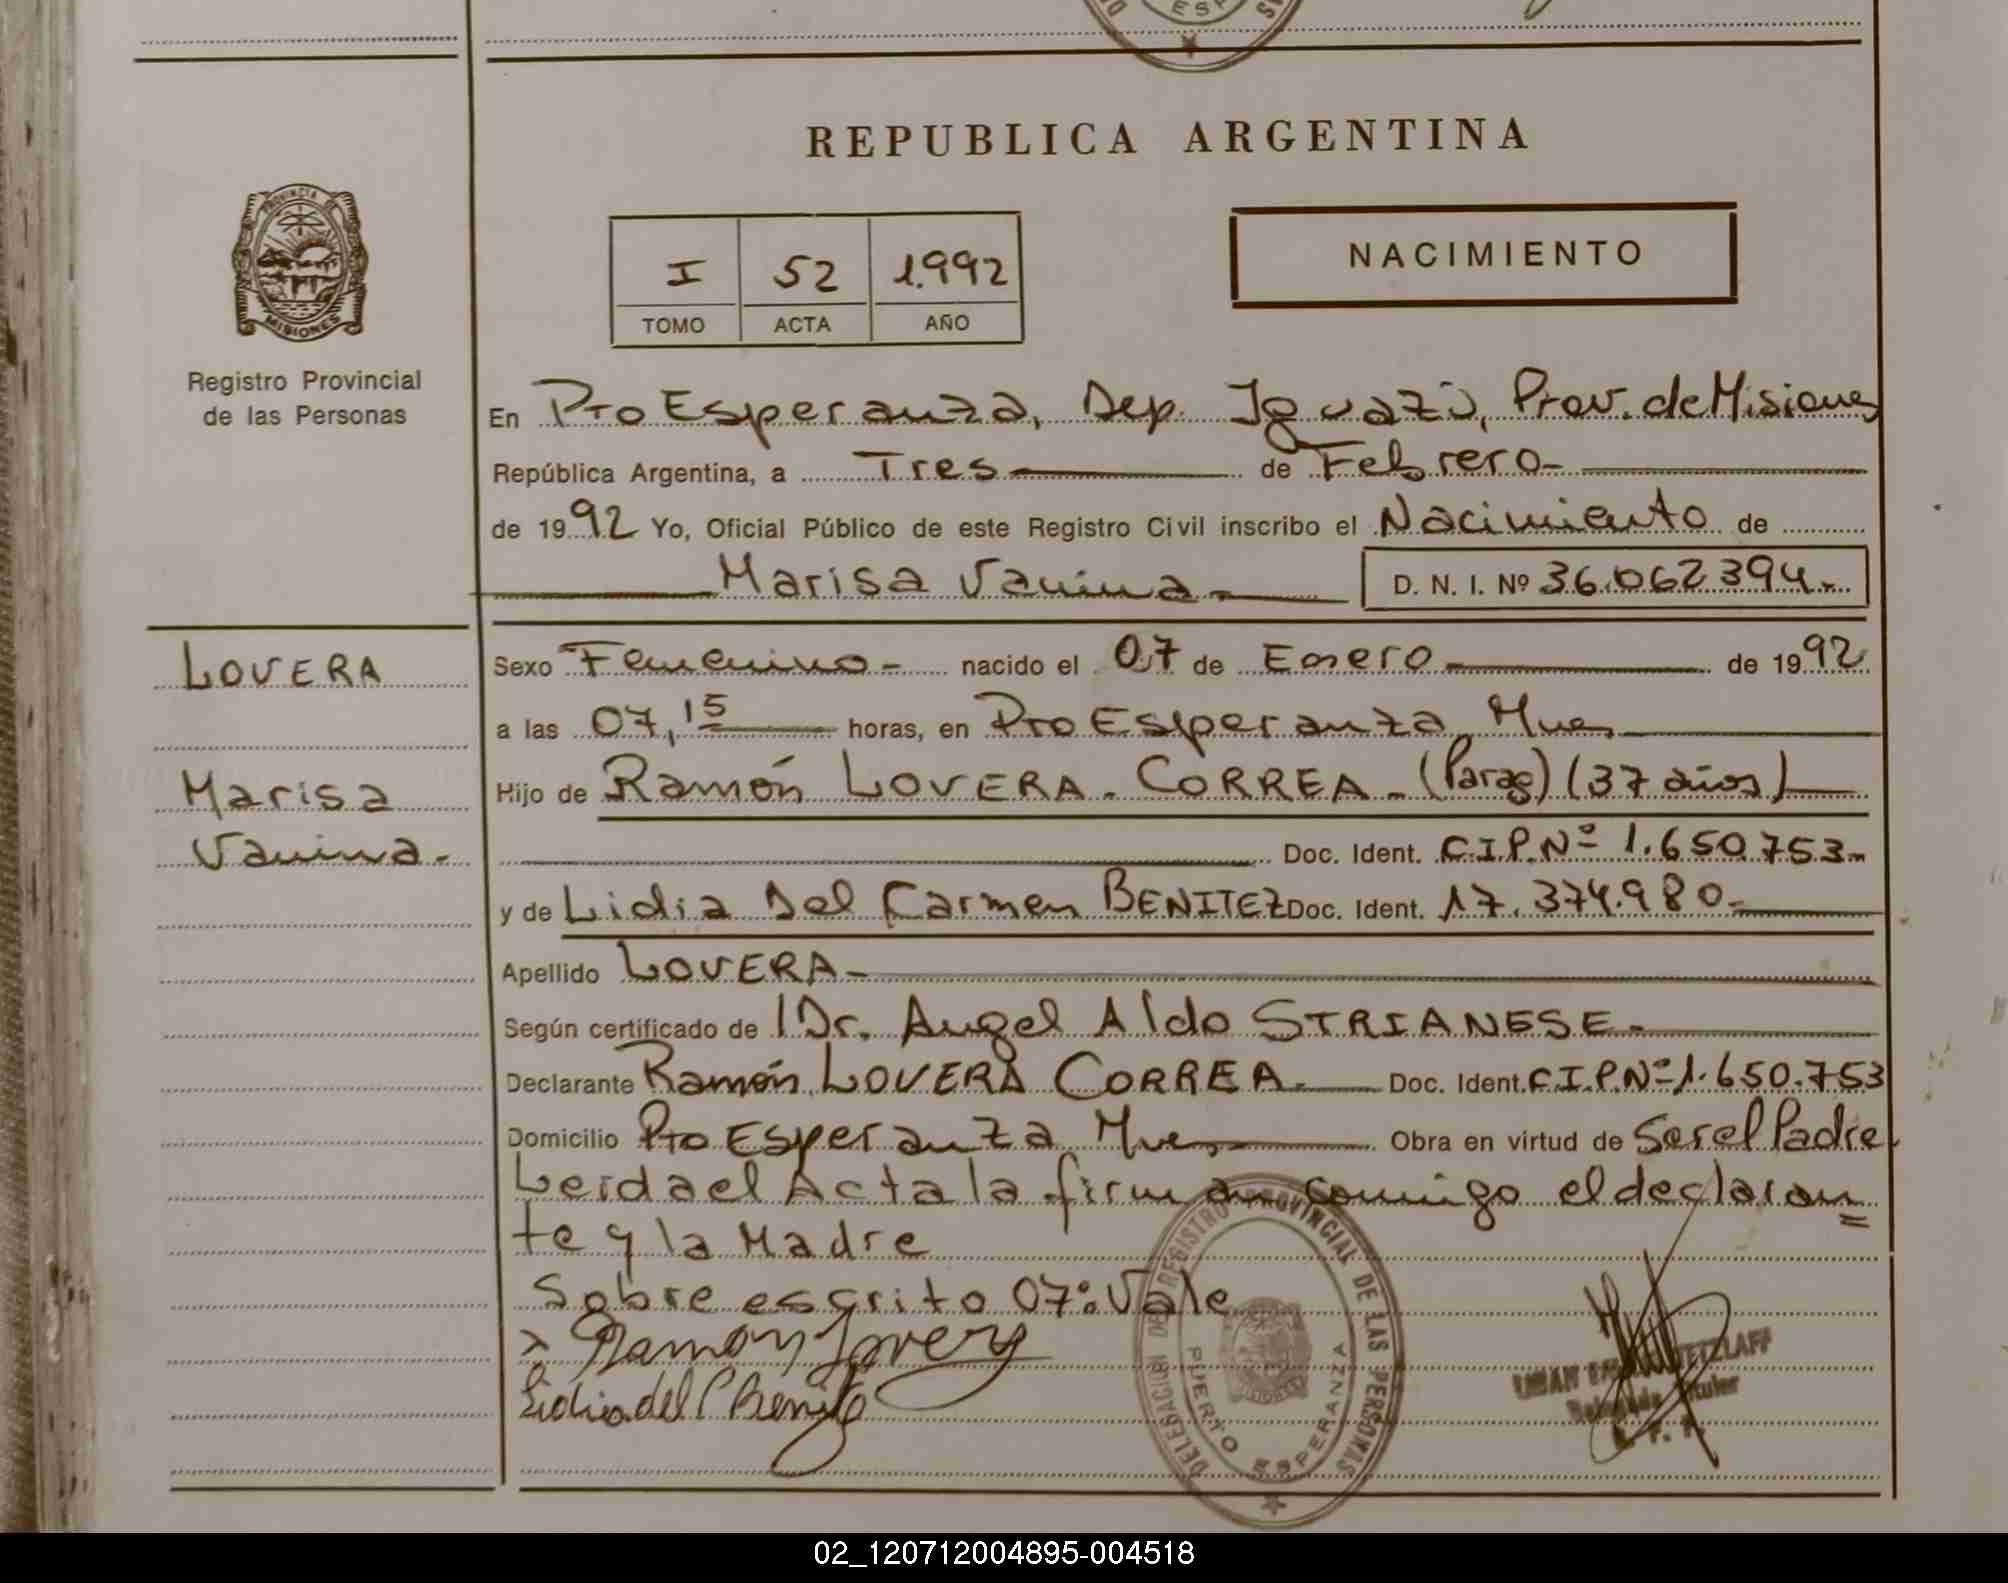 REPUBLICA ARGENTINA
PROVINCIA DE
MISIONES
Registro Provincial
de las Personas
I 52 1.992
TOMO ACTA AÑO
NACIMIENTO
En Pto Esperanza, Dep. Iguazú, Prov. de Misiones
República Argentina, a Tres de Febrero
de 1992 Yo, Oficial Público de este Registro Civil inscribo el Nacimiento de
Marisa Vanina D. N. I. Nº 36.062394
LOVERA
Marisa
Vanina.
Sexo Femenino nacido el 07 de Enero de 1992
a las 07,15 horas, en Pto Esperanza Mnes
Hijo de Ramón LOVERA - CORREA - (Parag) (37 años)
Doc. Ident. C.I.P.Nº 1.650.753
y de Lidia Del Carmen BENITEZ Doc. Ident. 17.374.980
Apellido LOVERA
Según certificado de Dr. Angel Aldo STRIANESE
Declarante Ramón LOVERA CORREA Doc. Ident. C.I.P.Nº 1.650.753
Domicilio Pto Esperanza Mnes Obra en virtud de Ser el Padre
Leida el Acta la firman comigo el declaran
te y la Madre
Sobre escrito 07: Vale
Ramon Lovera
Lidia del C Benitez
DELEGACION DEL REGISTRO PROVINCIAL DE LAS PERSONAS
PUERTO ESPERANZA
TETZLAFF
Titular
02_120712004895-004518